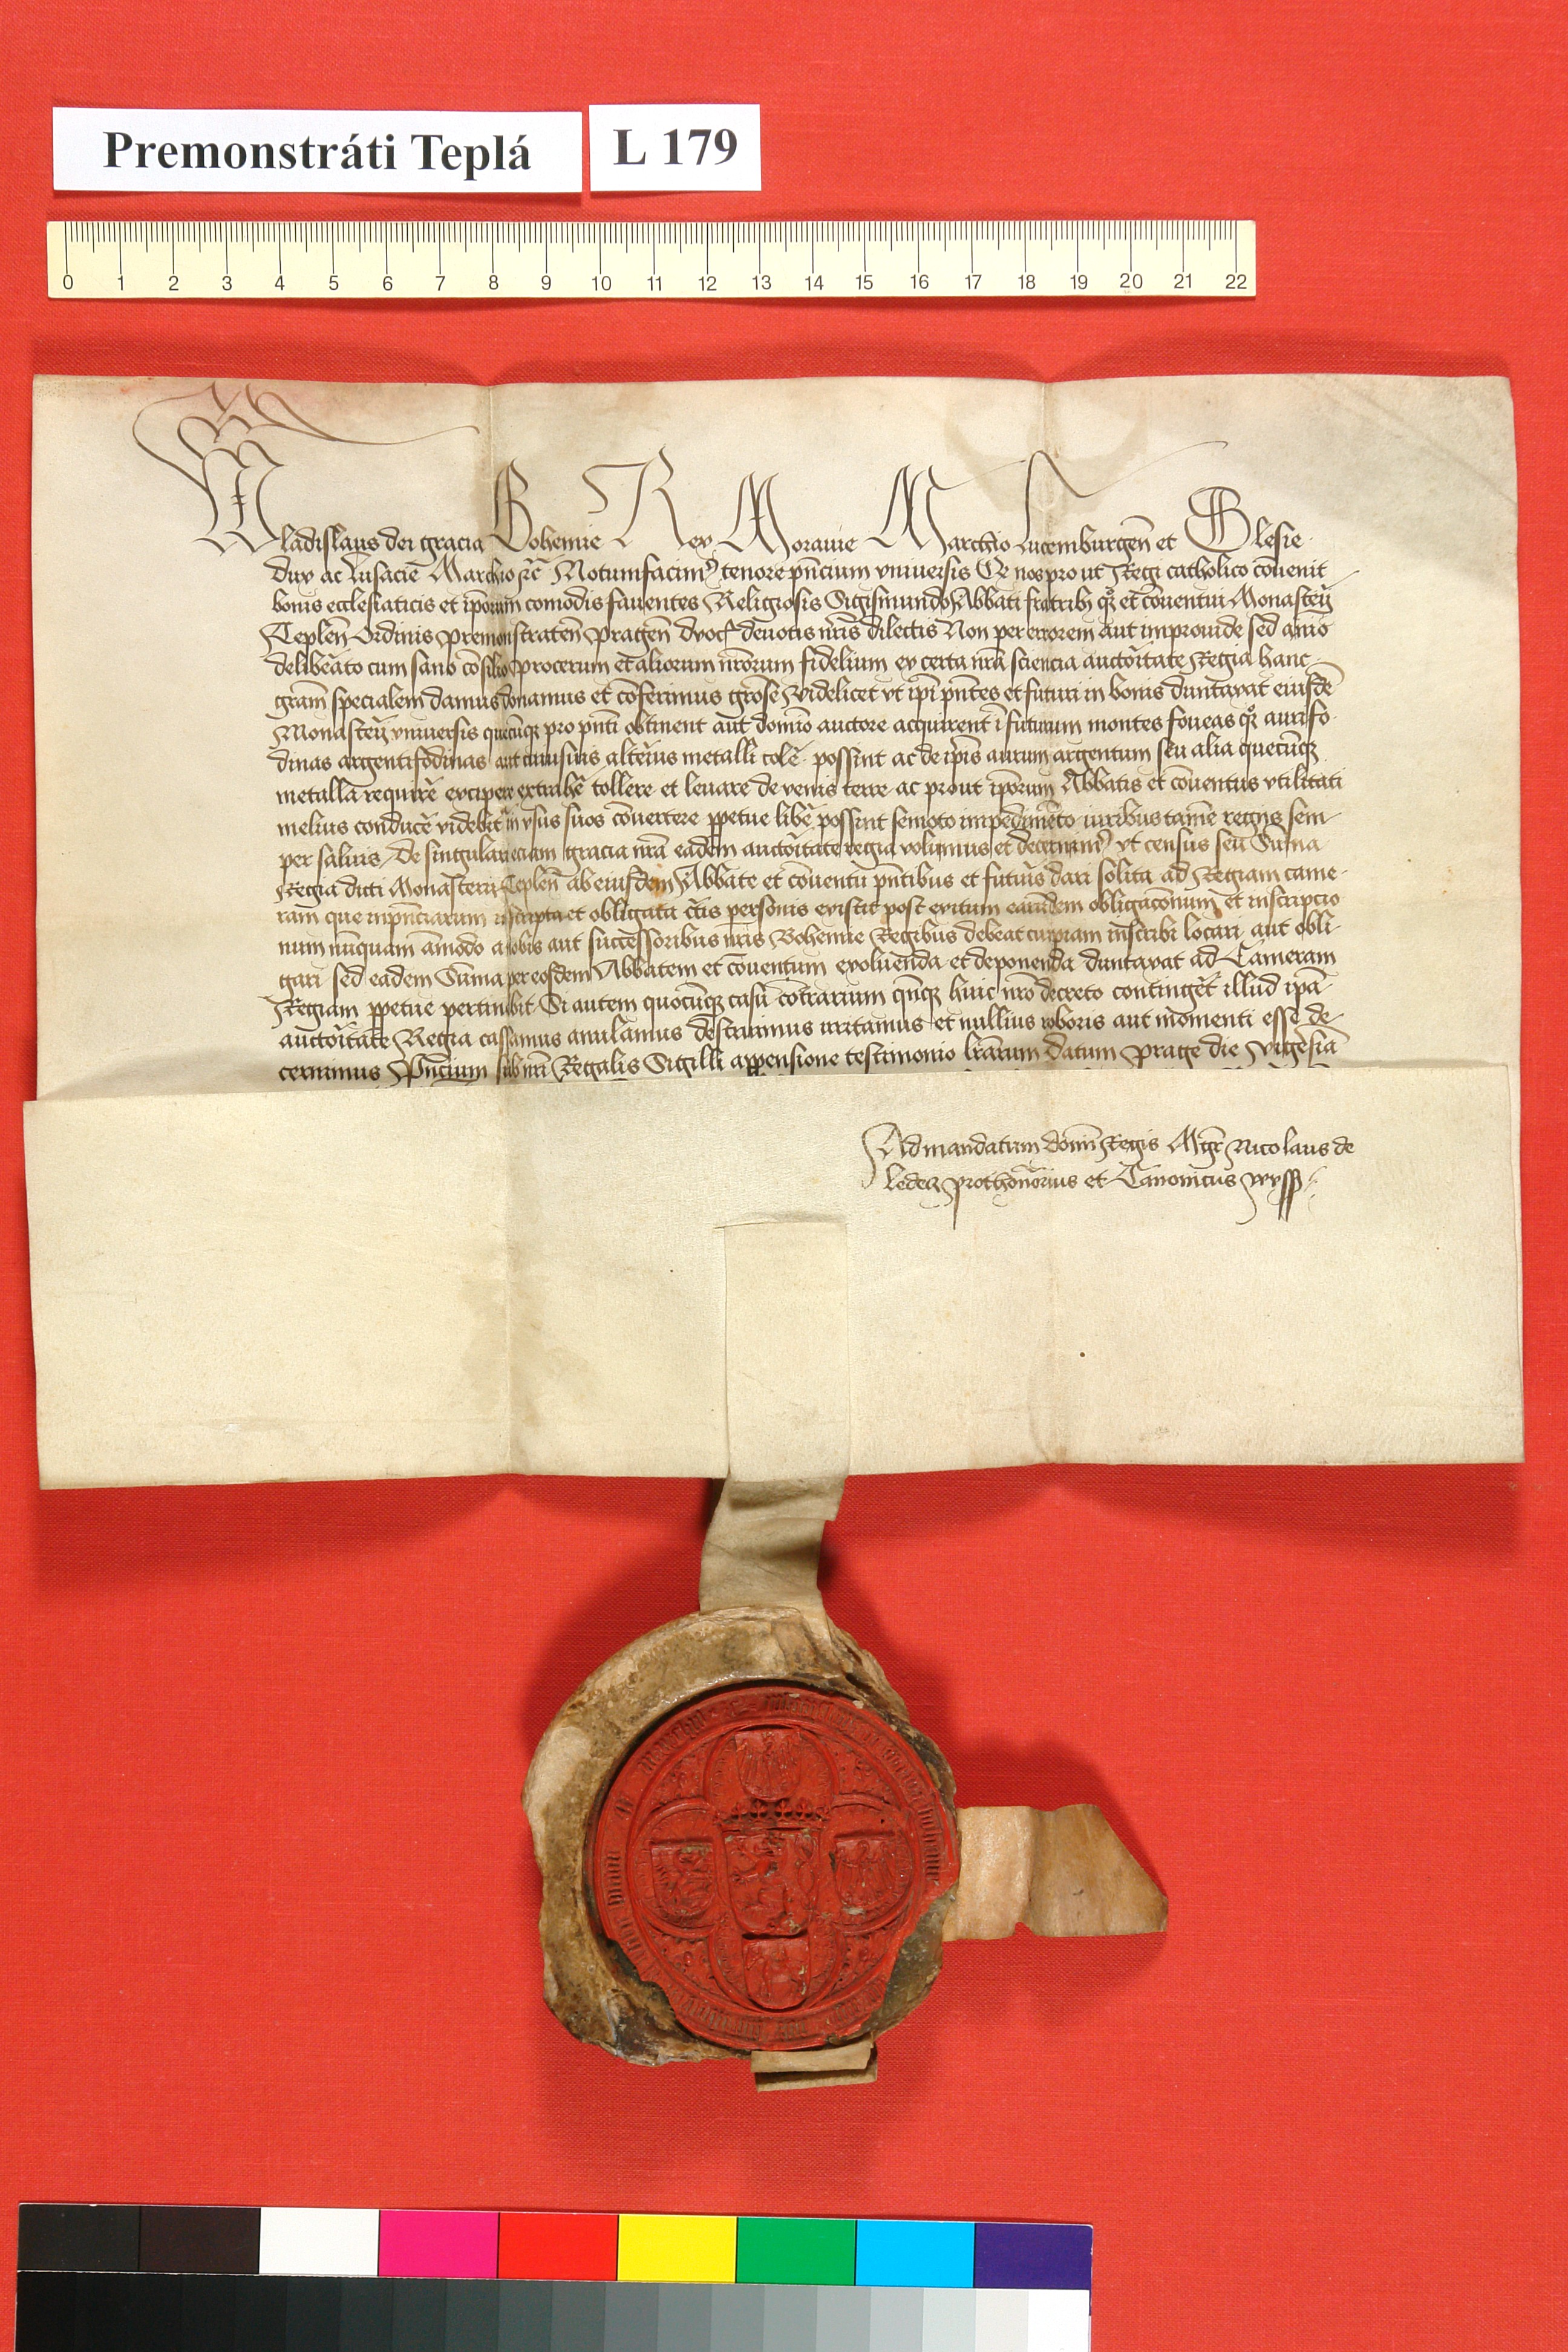 Premonstráti Teplá
L 179
0 1 2 3 4 5 6 7 8 9 10 11 12 13 14 15 16 17 18 19 20 21 22
Wladislaus dei gracia Bohemie Rex Morauie Marchio Lucemburgen̄ et Slesie
dux ac Lusacie Marchio ꝛc̄ Notumfacimꝰ tenore pn̄cium vniuersis Qꝫ nos pro ut Regi catholico co͞uenit
bonis ecclesiaticis et ip̄orum comodis fauentes Religiosis Sigismundo Abbati fratribꝫ qꝫ et co͞uentui Monasterij
Teplen̄ Ordinis premonstraten̄ pragen̄ dyoc̄ deuotis nr̄is dilectis Non per errorem aut improuide sed anīo
delibe͞ato cum sano co͞silio procerum et aliorum nr̄orum fidelium ex certa nr̄a sciencia aucto͞itate Regia hanc
gr̄am specialem damus donamus et co͞ferimus gro͞se Videlicet vt ip̄i pn̄tes et futuri in bonis duntaxat eiusdē
Monasterij vniuersis quecu͞qꝫ pro pn̄ti obtinent aut domīo auctore acquirent ī futurum montes foueas qꝫ aurifo
dinas argentifodinas aut cuiusuis alte͞ius metalli cole͞ possint ac de ip̄is aurum argentum seu alia quecu͞qꝫ
metalla require͞ excipere extrahe͞ tollere et leuare de venis terre ac prout ip̄orum Abbatis et co͞uentus vtilitati
melius conduce͞ videbit͛ in vsus suos co͞uertere ꝑpetue libe͞ possint semoto impedime͞to iuribus tame͞ regijs sem
per saluis De singulari eciam gracia nr̄a eadem aucto͞itate regia volumus et decernimꝰ vt census seu Su͞ma
Regia dicti Monasterij Teplen̄ ab eiusdem Abbate et co͞uentu pn̄tibus et futuris dari solita ad Regiam came
ram que inpn̄ciarum inscripta et obligata c̄tis personis existit post exitum earundem obligaco͞num et inscripcio
num nu͞quam a͞modo a nobis aut successoribus nr̄is Bohemie Regibus debeat cuipiam inscribi locari aut obli
gari sed eadem Su͞ma per eosdem Abbatem et co͞uentum exoluenda et deponenda duntaxat ad Cameram
Regiam ꝑpetue pertinebit Si autem quocu͞qꝫ casu co͞trarium qu͞qꝫ huic nr̄o decreto continge͞t illud ip̄a
aucto͞itate Regia cassamus anulamus destruimus irritamus et nullius roboris aut momenti esse de
cernimus Pn̄cium sub nr̄i Regalis Sigilli appensione testimonio lr̄arum Datum Prage die vigesia͞
Ad mandatum domi͞ Regis Mgr̄ Nicolaus de
ledecz prothono͞rius et Canonicus wyss̄